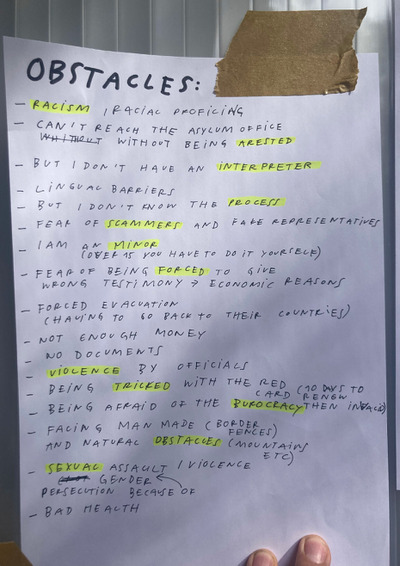 OBSTACLES:
– RACISM / RACIAL PROFICING
– CAN'T REACH THE ASYLUM OFFICE
WITHOUT BEING ARESTED
– BUT I DON'T HAVE AN INTERPRETER
– LINGUAL BARRIERS
– BUT I DON'T KNOW THE PROCESS
– FEAR OF SCAMMERS AND FAKE REPRESENTATIVES
– I AM AN MINOR
(OVER 15 YOU HAVE TO DO IT YOURSELF)
– FEAR OF BEING FORCED TO GIVE
WRONG TESTIMONY → ECONOMIC REASONS
– FORCED EVACUATION
(HAVING TO GO BACK TO THEIR COUNTRIES)
– NOT ENOUGH MONEY
– NO DOCUMENTS
– VIOLENCE BY OFFICIALS
– BEING TRICKED WITH THE RED (10 DAYS TO
CARD RENEW
– BEING AFRAID OF THE BUROCRACY THEN INVALID)
– FACING MAN MADE (BORDER
FENCES)
AND NATURAL OBSTACLES (MOUNTAINS
ETC)
– SEXUAL ASSAULT / VIOLENCE
GENDER
PERSECUTION BECAUSE OF
– BAD HEALTH